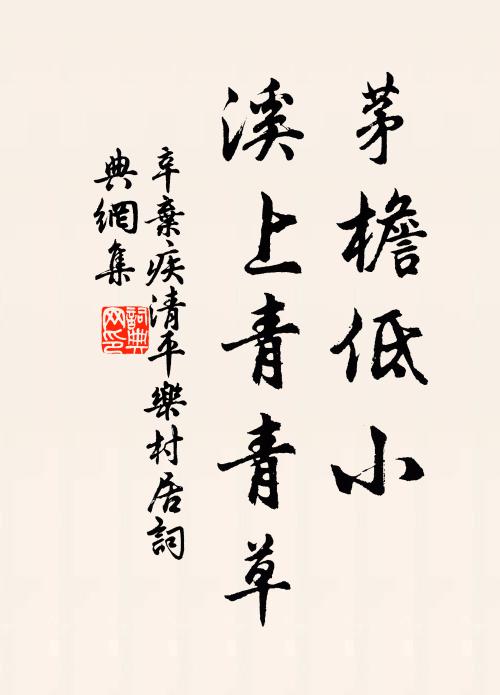 茅檐低小
溪上青青草
辛棄疾清平樂村居詞
典網集
詞典
网印